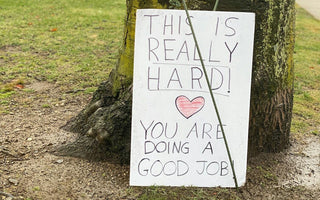 THIS IS
REALLY
HARD!
YOU ARE
DOING A
GOOD JOB!